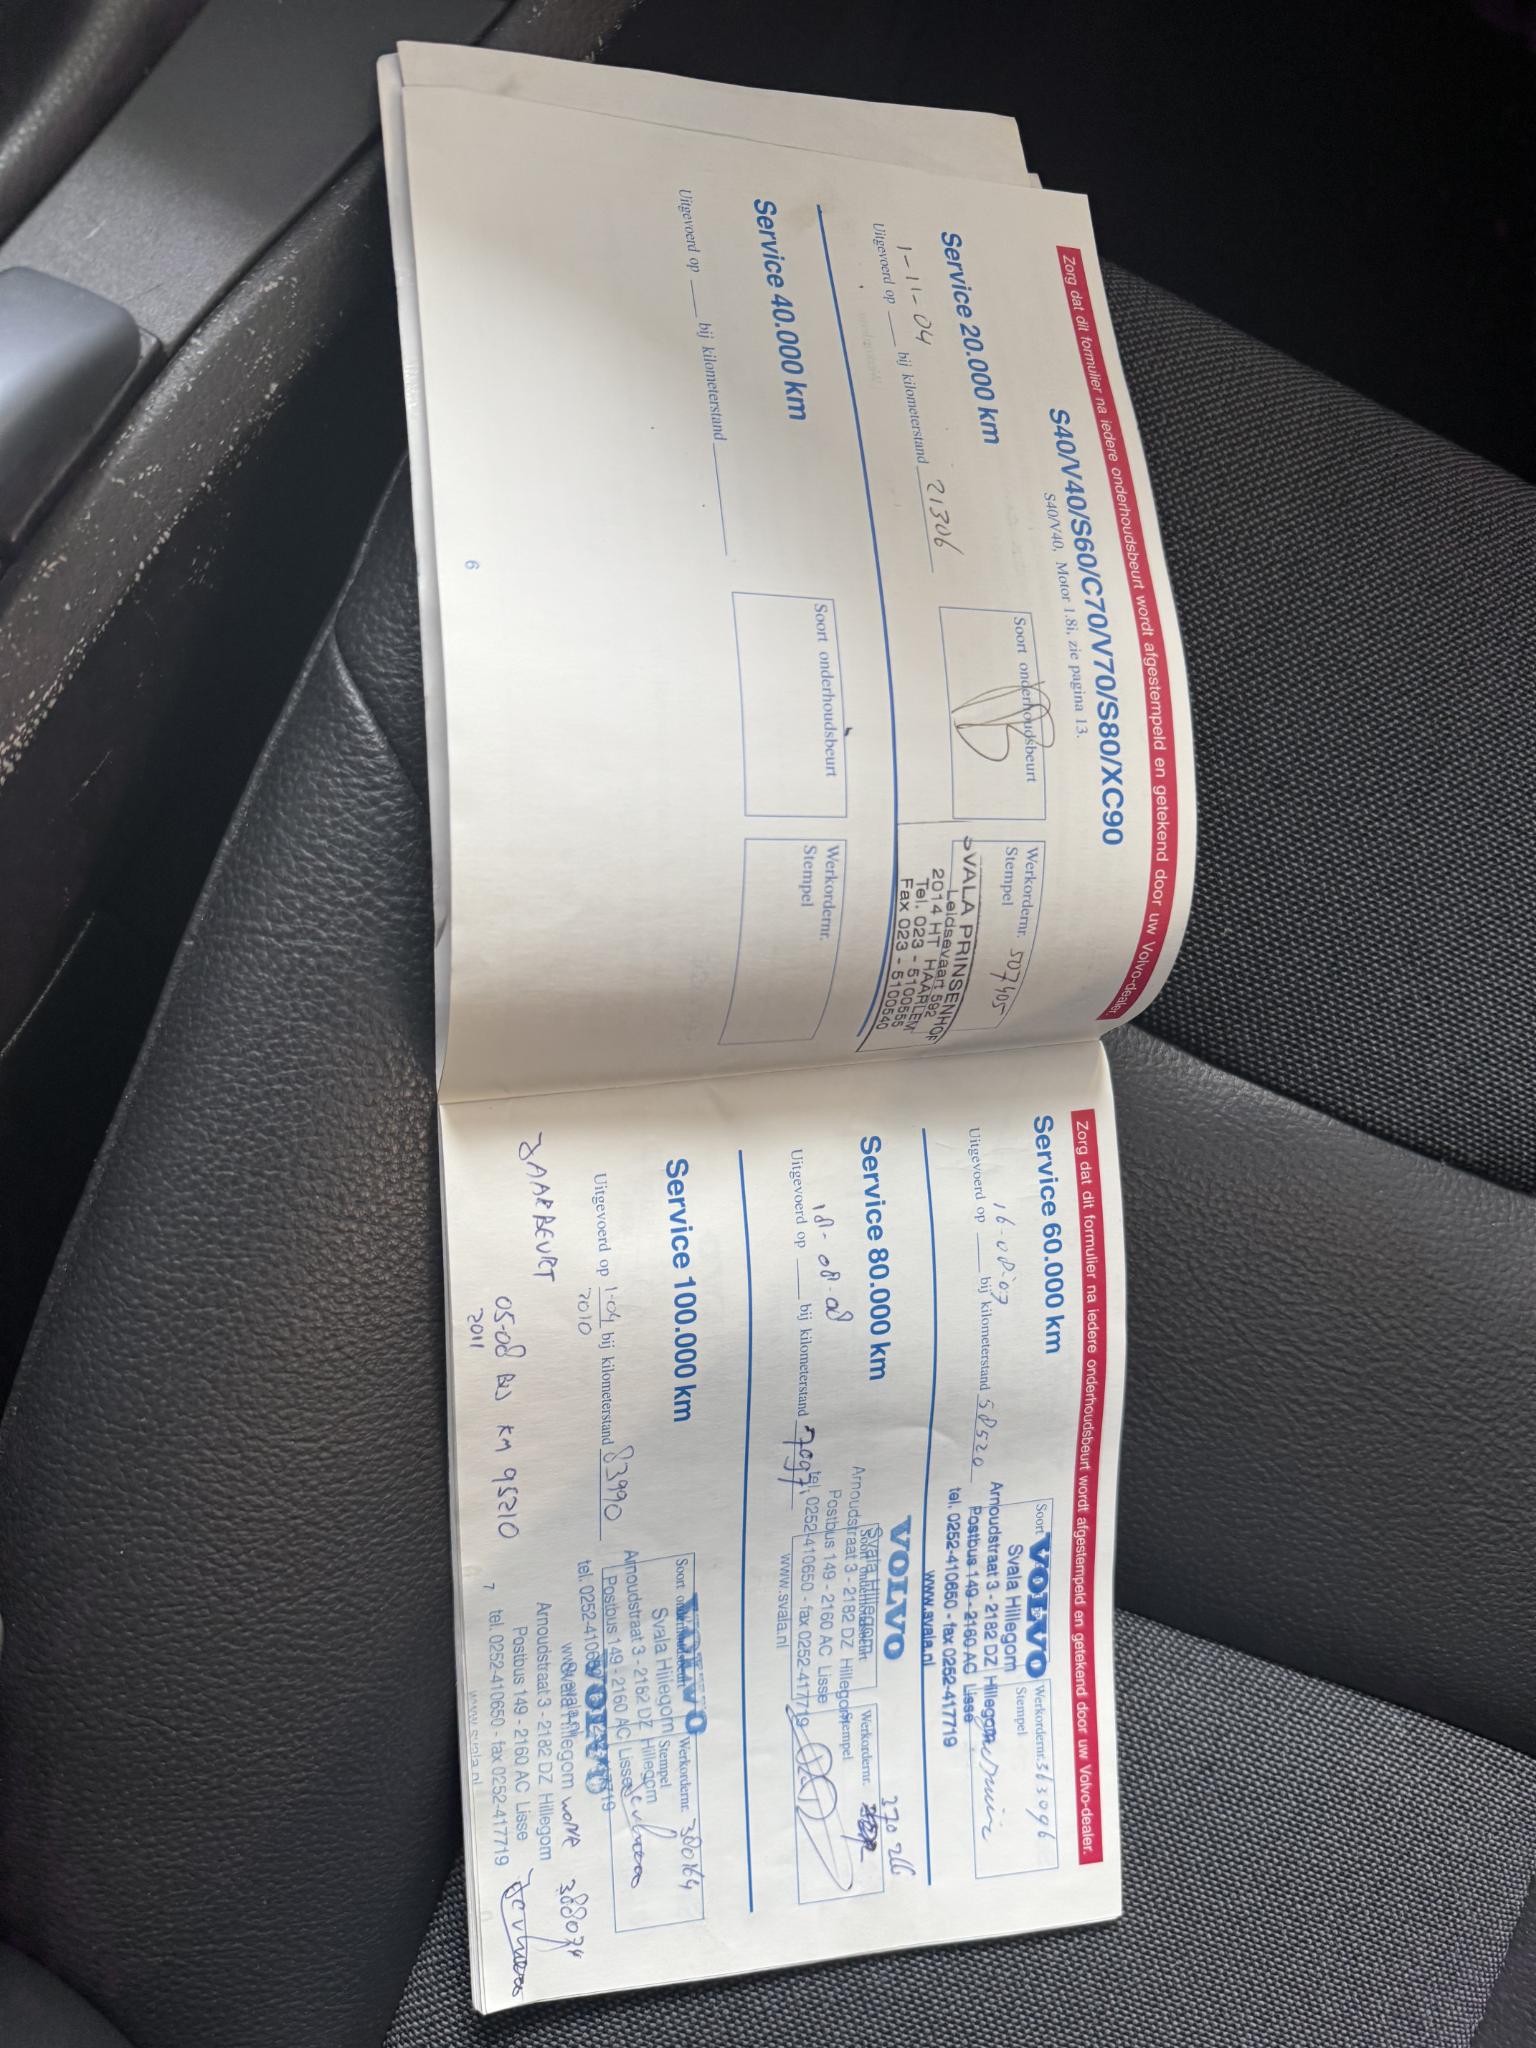 Zorg dat dit formulier na iedere onderhoudsbeurt wordt afgestempeld en getekend door uw Volvo-dealer.
S40/V40/S60/C70/V70/S80/XC90
S40/V40, Motor 1.8i, zie pagina 13.
Service 20.000 km
1-11-04
21306
Uitgevoerd op ___ bij kilometerstand
Soort onderhoudsbeurt
Werkordernr. 507405
Stempel
SVALA PRINSENHOF
Leidsevaart 592
2014 HT HAARLEM
Tel. 023 - 5100555
Fax 023 - 5100540
Service 40.000 km
Uitgevoerd op ___ bij kilometerstand
Soort onderhoudsbeurt
Werkordernr.
Stempel
6
Zorg dat dit formulier na iedere onderhoudsbeurt wordt afgestempeld en getekend door uw Volvo-dealer.
Service 60.000 km
16-08-07
Uitgevoerd op ___ bij kilometerstand 58520
Soort
Werkordernr. 363096
Stempel
VOLVO
Svala Hillegom
Arnoudstraat 3 - 2182 DZ Hillegom
Postbus 149 - 2160 AC Lisse
tel. 0252-410650 - fax 0252-417719
www.svala.nl
Service 80.000 km
18-08-08
Uitgevoerd op ___ bij kilometerstand
Soort onderhoudsbeurt
Werkordernr.
370266
Stempel
VOLVO
Svala Hillegom
Arnoudstraat 3 - 2182 DZ Hillegom
Postbus 149 - 2160 AC Lisse
tel. 0252-410650 - fax 0252-417719
www.svala.nl
Service 100.000 km
Uitgevoerd op 1-04 bij kilometerstand 83990
2010
Soort onderhoudsbeurt
Werkordernr. 380164
Stempel
VOLVO
Svala Hillegom
Arnoudstraat 3 - 2182 DZ Hillegom
Postbus 149 - 2160 AC Lisse
JAARBEURT
05-08 BIJ KM 95210
2011
VOLVO
Svala Hillegom
Arnoudstraat 3 - 2182 DZ Hillegom
Postbus 149 - 2160 AC Lisse
tel. 0252-410650 - fax 0252-417719
www.svala.nl
388074
7